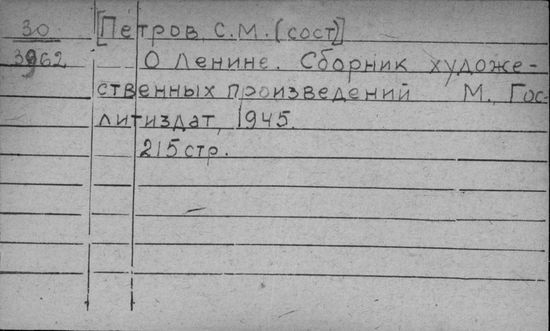 30 [Петров, С.М. (сост)]
3962 О Ленине. Сборник художе-
ственных произведений М., Гос-
литиздат, 1945.
215 стр.